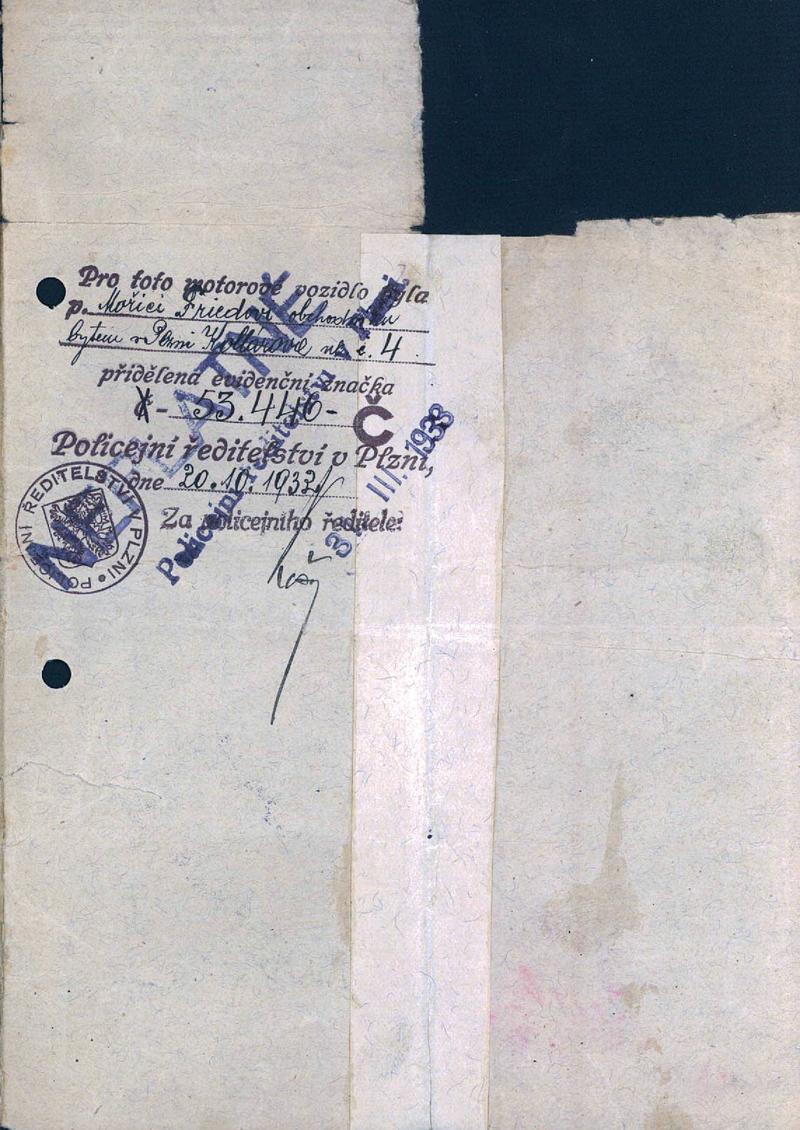 Pro toto motorové vozidlo byla
p. Mořici Friedovi obchodníku
bytem v Plzni Kollárova ul. č. 4.
přidělena evidenční značka
Č
- 53.446 -
Policejní ředitelství v Plzni,
dne 20.10.1933
Za policejního ředitele:
POLICEJNÍ ŘEDITELSTVÍ V PLZNI
NEPLATNÉ
Policejní ředitelství v Plzni.
3 III. 1938